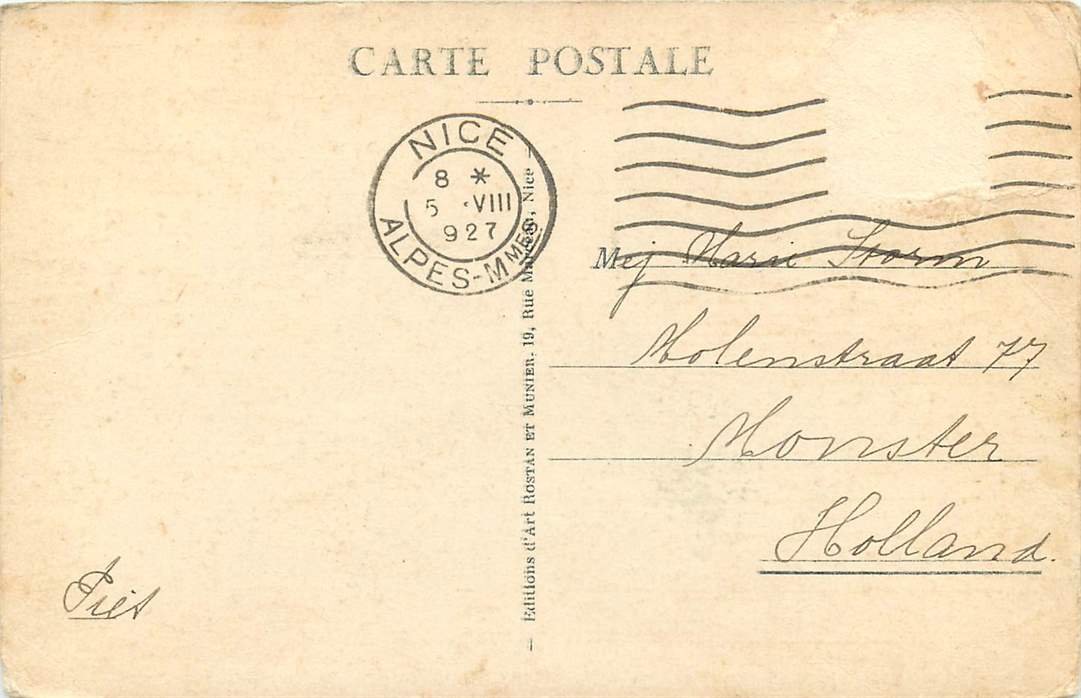 CARTE POSTALE
NICE
8 *
5 ·VIII
927
ALPES-MMES
Mej Marie Storm
Molenstraat 77
Monster
Holland.
Piet
— Editions d'Art ROSTAN ET MUNIER. 19, Rue Marceau, Nice —